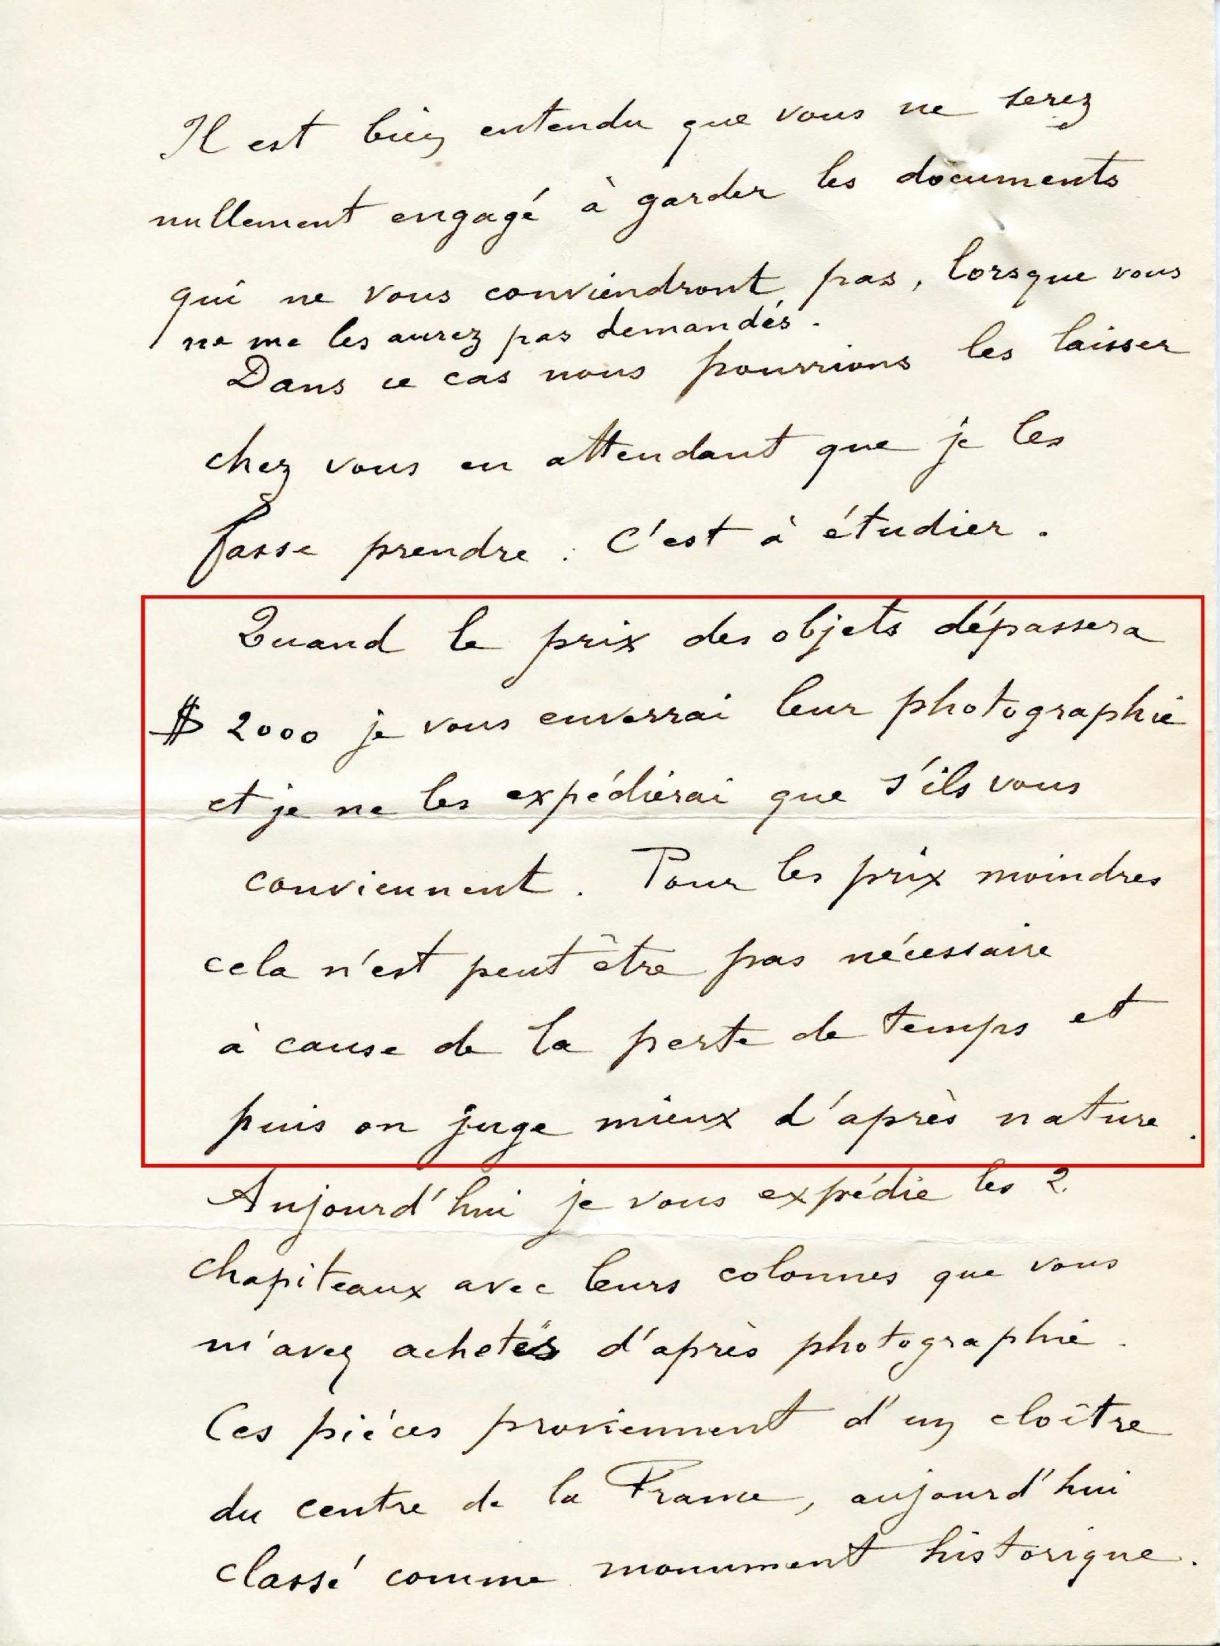 Il est bien entendu que vous ne serez
nullement engagé à garder les documents
qui ne vous conviendront pas, lorsque vous
ne me les aurez pas demandés.
Dans ce cas nous pourrions les laisser
chez vous en attendant que je les
fasse prendre. C'est à étudier.
Quand le prix des objets dépassera
$ 2000 je vous enverrai leur photographie
et je ne les expédiérai que s'ils vous
conviennent. Pour les prix moindres
cela n'est peut être pas nécessaire
à cause de la perte de temps et
puis on juge mieux d'après nature.
Aujourd'hui je vous expédie les 2
chapiteaux avec leurs colonnes que vous
m'avez achetés d'après photographie.
Ces pièces proviennent d'un cloître
du centre de la France, aujourd'hui
classé comme monument historique.